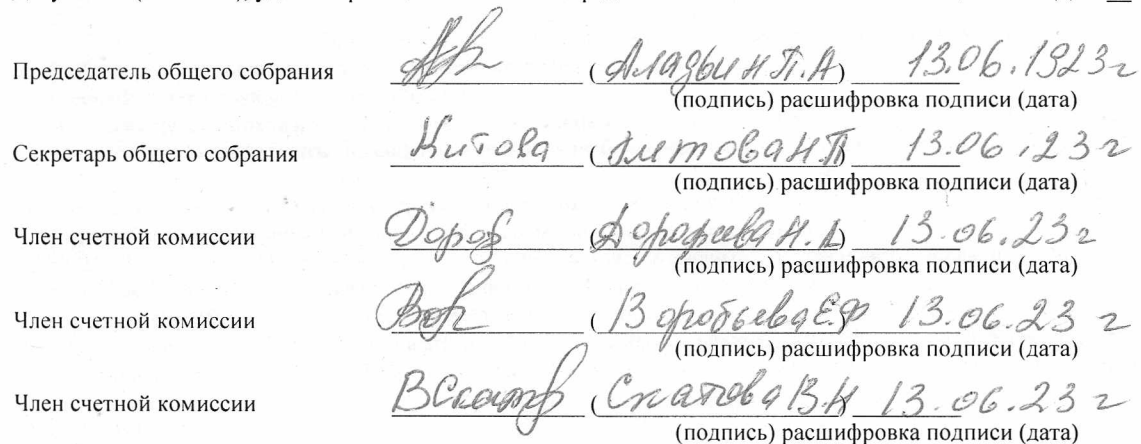 Председатель общего собрания (Аладьин П.А) 13.06.1923г
(подпись) расшифровка подписи (дата)
Секретарь общего собрания Китова (Китова Н П) 13.06.23г
(подпись) расшифровка подписи (дата)
Член счетной комиссии Дороф (Дорофеева Н. А) 13.06.23г
(подпись) расшифровка подписи (дата)
Член счетной комиссии Вор (Воробьева Е.Ф) 13.06.23 г
(подпись) расшифровка подписи (дата)
Член счетной комиссии ВСкатов (Скатова В.Н) 13.06.23 г
(подпись) расшифровка подписи (дата)